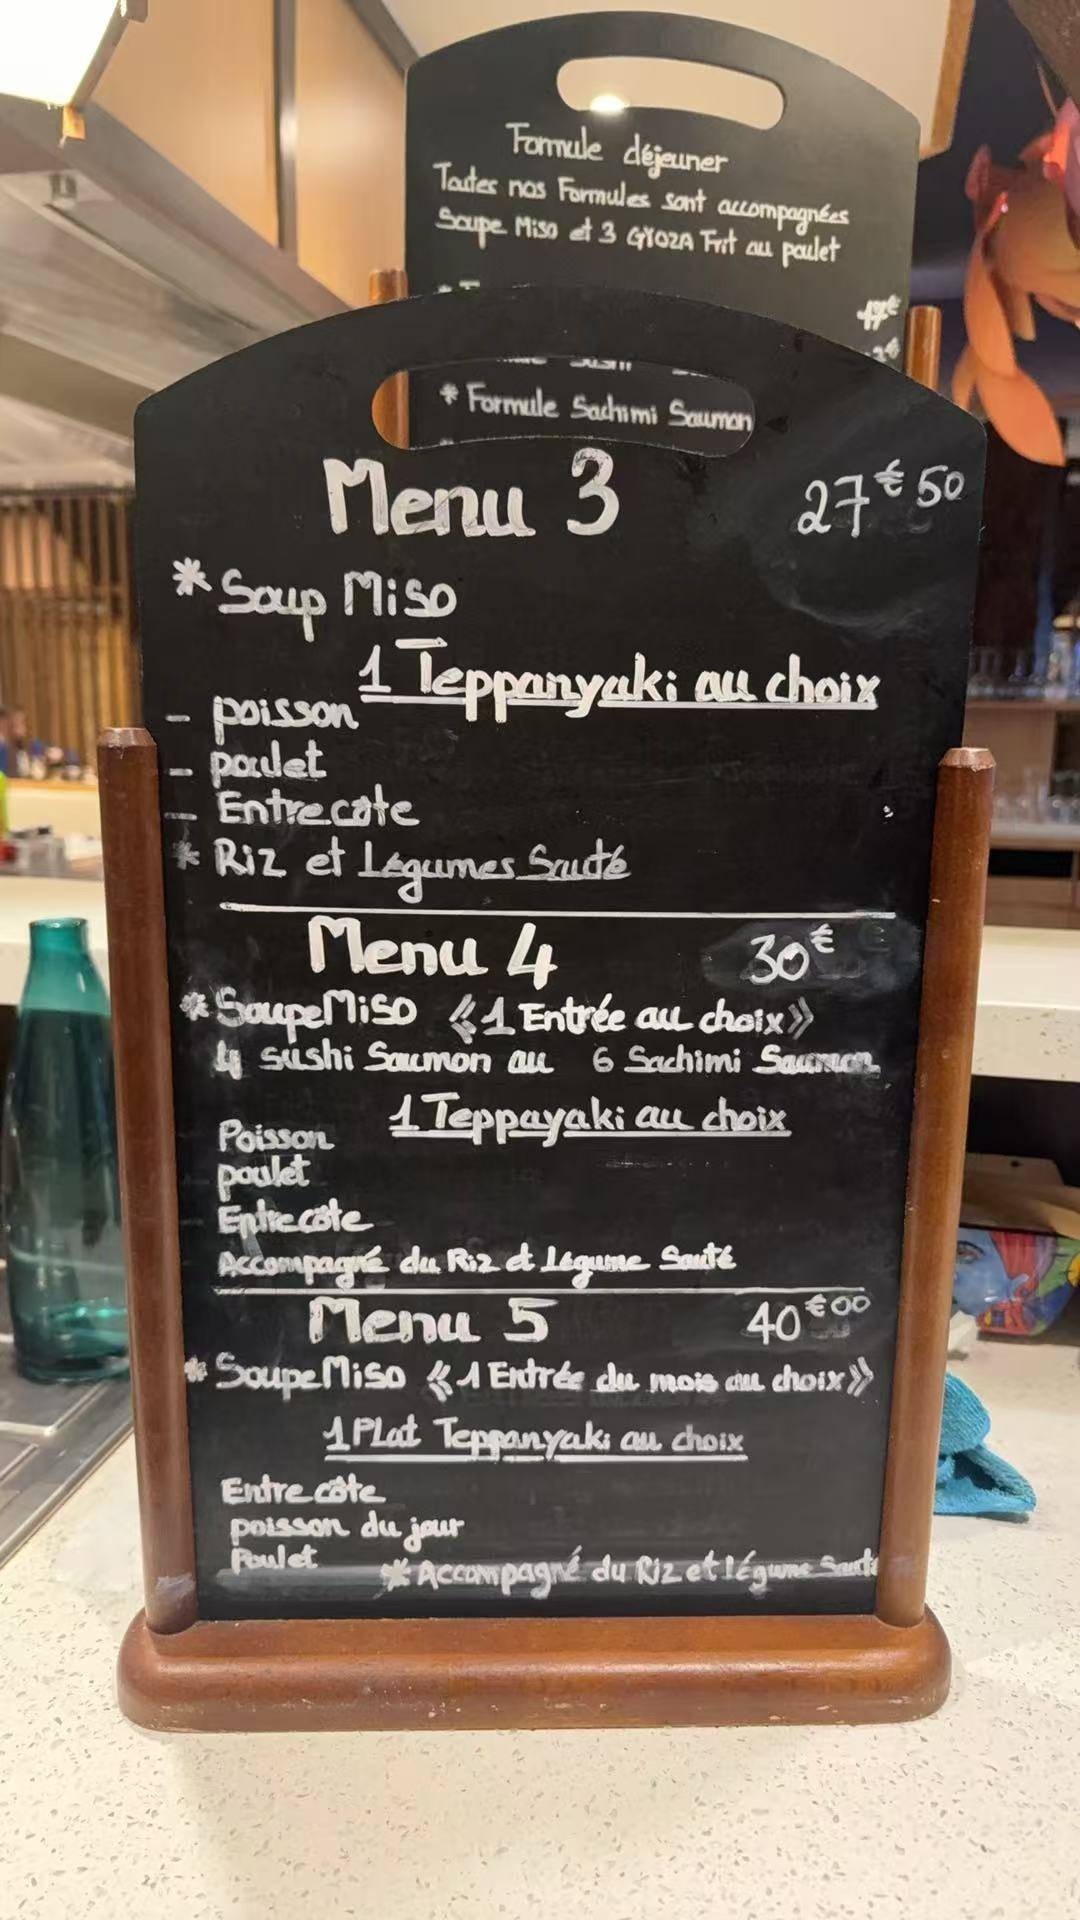 Formule déjeuner
Toutes nos Formules sont accompagnées
Soupe Miso et 3 GYOZA Frit au poulet
17€
* Formule Sachimi Saumon
Menu 3 27€50
* Soup Miso
1 Teppanyaki au choix
- poisson
- poulet
- Entrecôte
* Riz et Légumes Sauté
Menu 4 30€
* Soupe Miso «1 Entrée au choix»
4 sushi Saumon ou 6 Sachimi Saumon
1 Teppayaki au choix
Poisson
poulet
Entrecôte
Accompagné du Riz et Légume Sauté
Menu 5 40€00
* Soupe Miso «1 Entrée du mois au choix»
1 Plat Teppanyaki au choix
Entrecôte
poisson du jour
Poulet
* Accompagné du Riz et légume Sauté